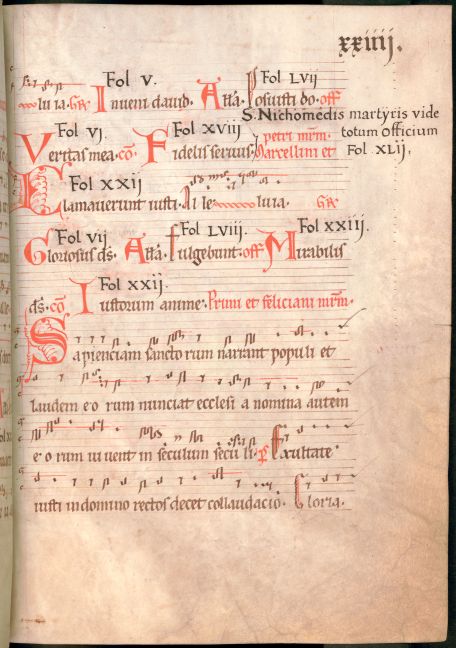 xxiiij.
Fol V. Fol LVij
luia. Inueni dauid. Alla. Posuisti do. off
S. Nichomedis martyris vide
Fol VI. Fol XVIII petri mrm. totum officium
Veritas mea. co. Fidelis seruus. Marcellini et Fol XLIj.
Fol XXIj
Clamauerunt iusti. Al le luia.
Fol VIj Fol LVIIj. Fol XXIIIj.
Gloriosus ds. Alla. fulgebunt. off Mirabilis
Fol XXIj.
ds. co Iustorum anime. Primi et feliciani mrm.
Sapienciam sancto rum narrant populi et
laudem e o rum nunciat ecclesi a nomina autem
e o rum ui uent in seculum secu li. p Exultate
iusti in domino rectos decet collaudacio. Gloria.